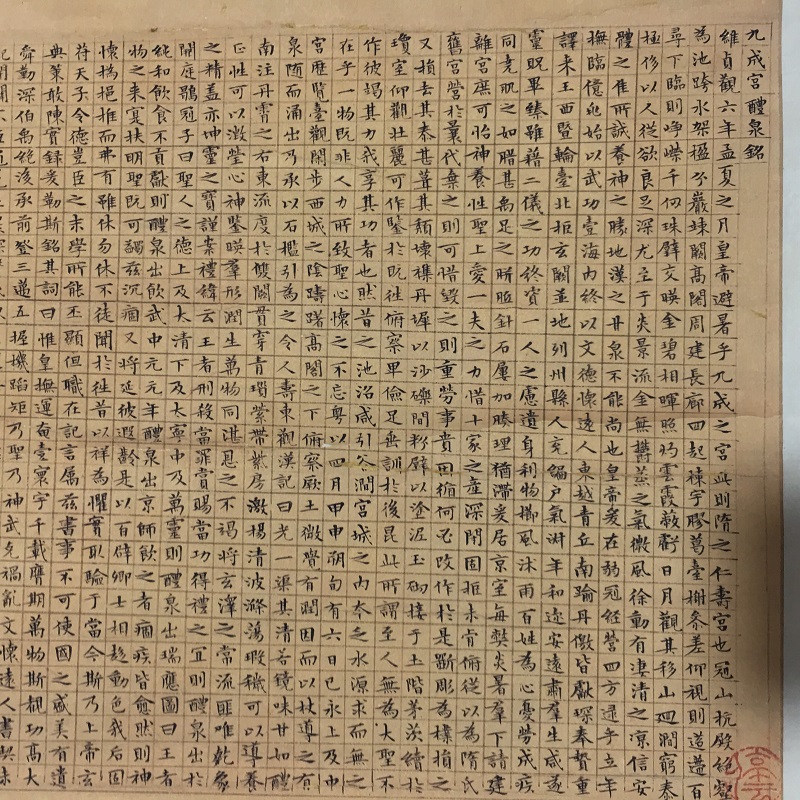 九成宮醴泉銘
維貞觀六年孟夏之月皇帝避暑乎九成之宮此則隋之仁壽宮也冠山抗殿絕壑
為池跨水架楹分巖竦闕高閣周建長廊四起棟宇膠葛臺榭參差仰視則迢遰百
尋下臨則崢嶸千仞珠璧交暎金碧相暉照灼雲霞蔽虧日月觀其移山迴澗窮泰
極侈以人從欲良足深尤至于炎景流金無鬱蒸之氣微風徐動有淒清之涼信安
體之佳所誠養神之勝地漢之甘泉不能尚也皇帝爰在弱冠經營四方逮乎立年
撫臨億兆始以武功壹海內終以文德懷遠人東越青丘南踰丹徼皆獻琛奉贄重
譯來王西暨輪臺北拒玄闕並地列州縣人充編戶氣淑年和迩安遠肅羣生咸遂
靈貺畢臻雖藉二儀之功終資一人之慮遺身利物櫛風沐雨百姓為心憂勞成疾
同堯肌之如腊甚禹足之胼胝針石屢加腠理猶滯爰居京室每弊炎暑羣下請建
離宮庶可怡神養性聖上愛一夫之力惜十家之產深閇固拒未肯俯從以為隋氏
舊宮營於曩代棄之則可惜毀之則重勞事貴因循何必改作於是斲彫為樸損之
又損去其泰甚葺其頹壞雜丹墀以沙礫間粉壁以塗泥玉砌接于土階茅茨續於
瓊室仰觀壯麗可作鑒於既往俯察卑儉足垂訓於後昆此所謂至人無為大聖不
作彼竭其力我享其功者也然昔之池沼咸引谷澗宮城之內本乏水源求而無之
在乎一物既非人力所致聖心懷之不忘粵以四月甲申朔旬有六日己亥上及中
宮歷覽臺觀閑步西城之陰躊躇高閣之下俯察厥土微覺有潤因而以杖導之有
泉随而涌出乃承以石檻引為一渠其清若鏡味甘如醴
南注丹霄之右東流度於雙闕貫穿青瑣縈帶紫房激揚清波滌蕩瑕穢可以導養
正性可以澂瑩心神鑒暎羣形潤生萬物同湛恩之不竭將玄澤之常流匪唯乾象
之精蓋亦坤靈之寶謹案禮緯云王者刑殺當罪賞賜當功得禮之宜則醴泉出於
闕庭鶡冠子曰聖人之德上及太清下及太寧中及萬靈則醴泉出瑞應圖曰王者
純和飲食不貢獻則醴泉出飲之令人壽東觀漢記曰光武中元元年醴泉出京師飲之者痼疾皆愈然則神
物之來寔扶明聖既可蠲茲沉痼又將延彼遐齡是以百辟卿士相趍動色我后固
懷撝挹推而弗有雖休勿休不徒聞於往昔以祥為懼實取驗于當今斯乃上帝玄
符天子令德豈臣之末學所能丕顯但職在記言属茲書事不可使國之盛美有遺
典策敢陳實録爰勒斯銘其詞曰惟皇撫運奄壹寰宇千載膺期萬物斯覩功高大
舜勤深伯禹絕後承前登三邁五握機蹈矩乃聖乃神武克禍亂文懷遠人書契未